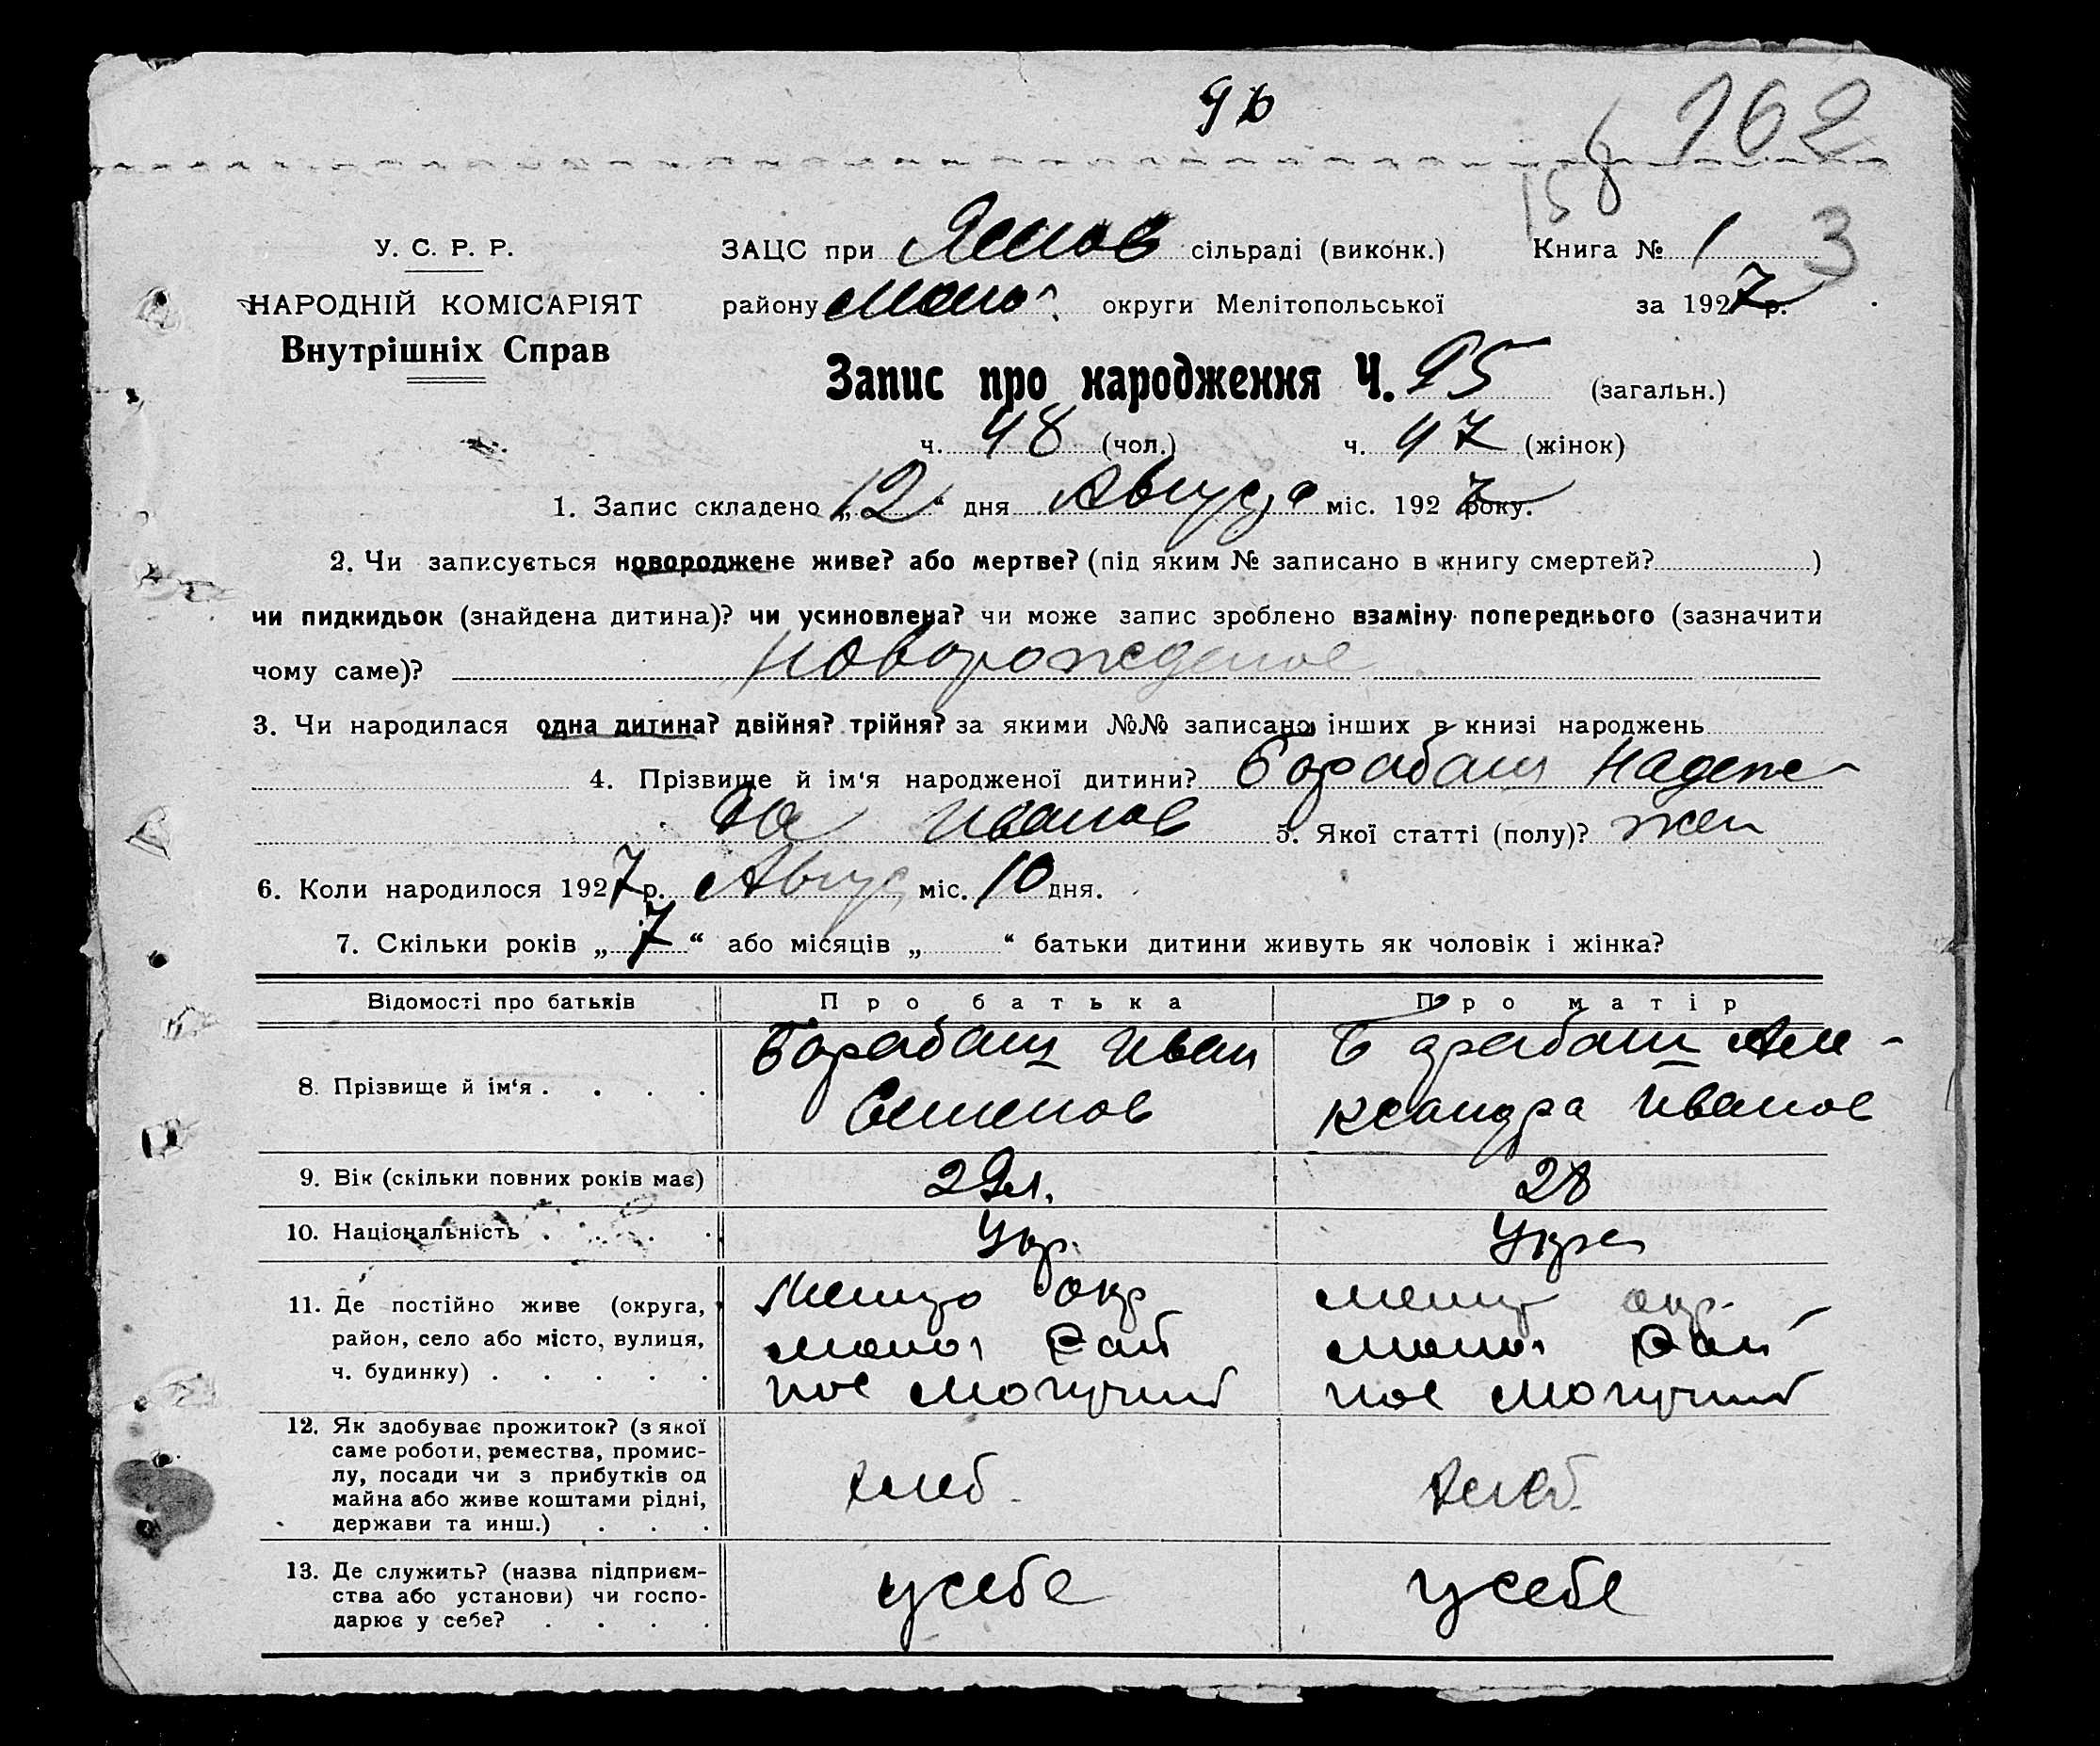 96
162
158
3
У. С. Р. Р.
НАРОДНІЙ КОМІСАРІЯТ
Внутрішніх Справ
ЗАЦС при Яснов сільраді (виконк.) Книга № 1
району округи Мелітопольської за 1927 р.
Запис про народження Ч. 95 (загальн.)
ч. 48 (чол.) ч. 47 (жінок)
1. Запис складено „12“ дня Августа міс. 1927 року.
2. Чи записується новороджене живе? або мертве? (під яким № записано в книгу смертей? )
чи пидкидьок (знайдена дитина)? чи усиновлена? чи може запис зроблено взаміну попереднього (зазначити
чому саме)? новорожденое
3. Чи народилася одна дитина? двійня? трійня? за якими №№ записано інших в книзі народжень
4. Прізвище й ім‘я народженої дитини? Барабаш Надеж-
да Иванов 5. Якої статті (полу)? жен
6. Коли народилося 1927 р. Авгус міс. 10 дня.
7. Скільки років „7“ або місяців „ “ батьки дитини живуть як чоловік і жінка?
Відомості про батьків Про батька Про матір
8. Прізвище й ім‘я . . . . Барабаш Иван Барабаш Але-
Семенов ксандра Иванов
9. Вік (скільки повних років має) 29 л. 28
10. Національність . . . . Укр. Укра
11. Де постійно живе (округа, Мелито окр Мелит окр.
район, село або місто, вулиця, Рай Рай
ч. будинку) . . . . . пос Могучий пос Могучий
12. Як здобуває прожиток? (з якої
саме роботи, ремества, промис-
лу, посади чи з прибутків од хлеб. хлеб.
майна або живе коштами рідні,
держави та инш.) . . .
13. Де служить? (назва підприєм-
ства або установи) чи госпо- у себе у себе
дарює у себе? . . . .